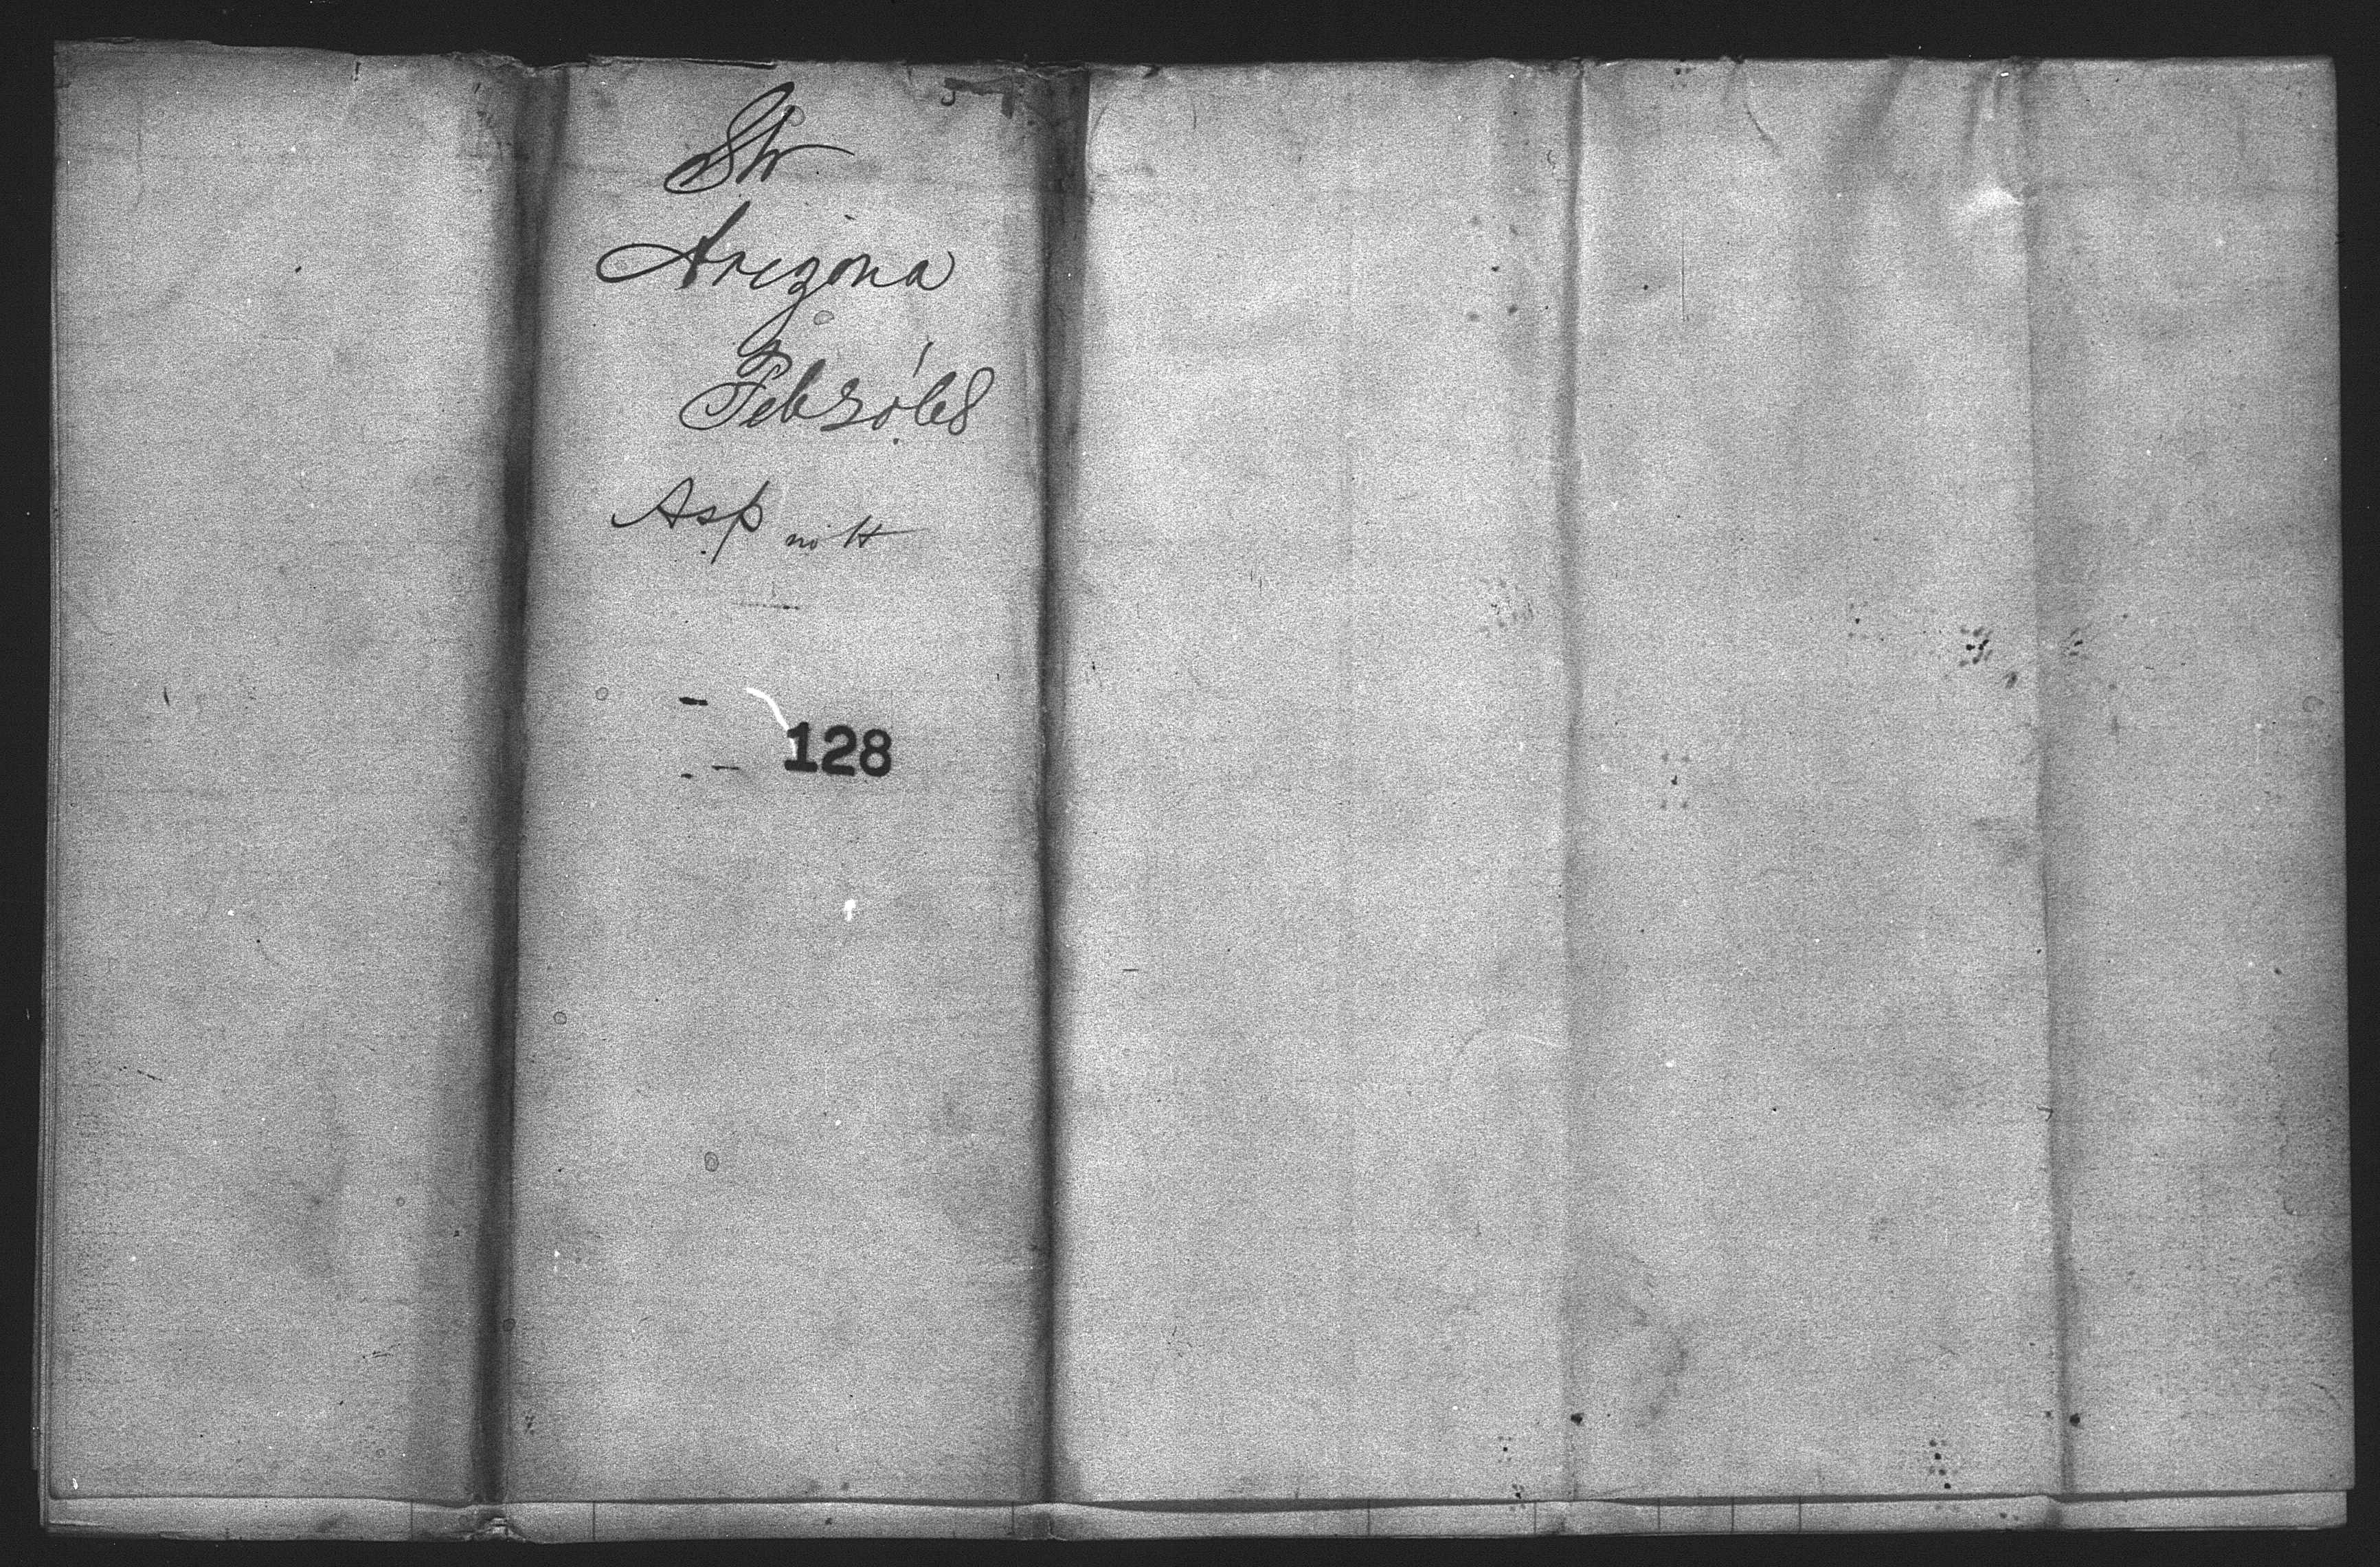 Str
Arizona
Feb 20/68
Asp
128